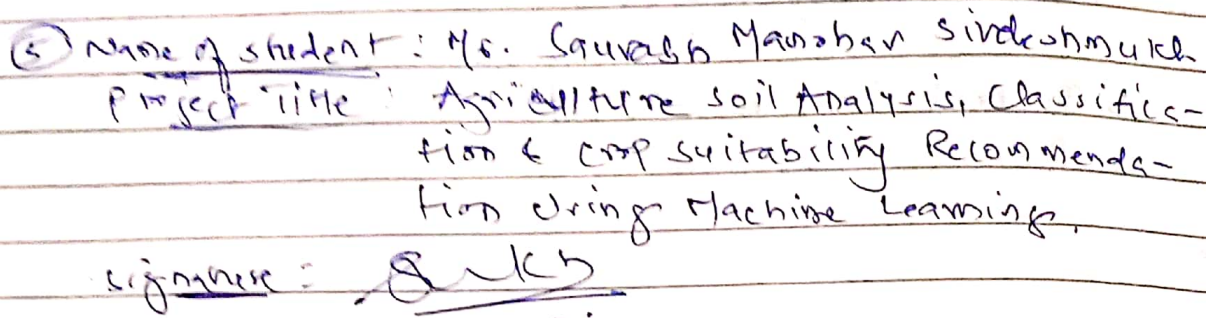 (5) Name of student : Mr. Saurabh Manohar Sirdeshmukh
Project Title : Agriculture Soil Analysis, Classifica-
tion & Crop Suitability Recommenda-
tion Using Machine Learning.
Signature :